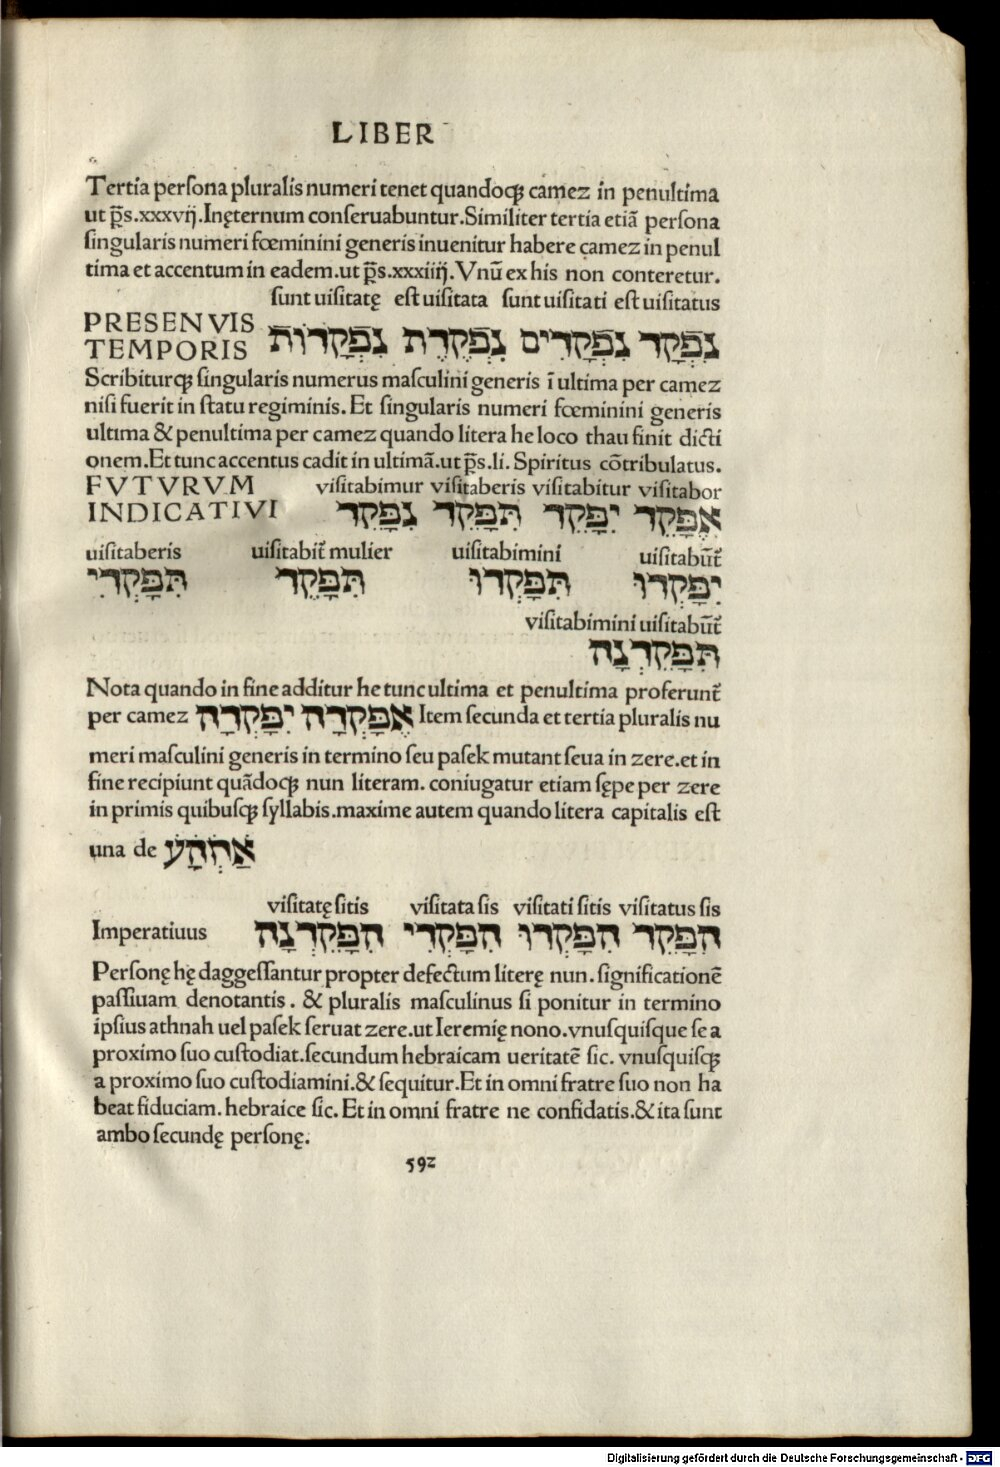 LIBER
Tertia perſona pluralis numeri tenet quandoqꝫ camez in penultima
ut p̅s.xxxvij.Inęternum conſeruabuntur.Similiter tertia etiã perſona
ſingularis numeri fœminini generis inuenitur habere camez in penul
tima et accentum in eadem.ut p̅s.xxxiiij.Vnũ ex his non conteretur.
ſunt uiſitatę eſt uiſitata ſunt uiſitati eſt uiſitatus
PRESENVIS
TEMPORIS
נִפְקָד נִפְקָדִים נִפְקֶדֶת נִפְקָדוֹת
Scribiturqꝫ ſingularis numerus maſculini generis ĩ ultima per camez
niſi fuerit in ſtatu regiminis. Et ſingularis numeri fœminini generis
ultima & penultima per camez quando litera he loco thau finit dicti
onem.Et tunc accentus cadit in ultimã.ut p̅s.li. Spiritus cõtribulatus.
FVTVRVM
INDICATIVI
viſitabimur viſitaberis viſitabitur viſitabor
אֶפָּקֵד יִפָּקֵד תִּפָּקֵד נִפָּקֵד
uiſitaberis uiſitabit̃ mulier uiſitabimini uiſitabũt̃
יִפָּקְדוּ תִּפָּקְדוּ תִּפָּקֵד תִּפָּקְדִי
viſitabimini uiſitabũt̃
תִּפָּקֵדְנָה
Nota quando in fine additur he tunc ultima et penultima proferunt̃
per camez אֶפָּקְדָה יִפָּקְדָה Item ſecunda et tertia pluralis nu
meri maſculini generis in termino ſeu paſek mutant ſeua in zere.et in
fine recipiunt quãdoqꝫ nun literam. coniugatur etiam ſępe per zere
in primis quibuſqꝫ ſyllabis.maxime autem quando litera capitalis eſt
una de אַחְהָע
viſitatę ſitis viſitata ſis viſitati ſitis viſitatus ſis
Imperatiuus הִפָּקֵד הִפָּקְדוּ הִפָּקְדִי הִפָּקֵדְנָה
Perſonę hę daggeſſantur propter defectum literę nun. ſignificationẽ
paſſiuam denotantis. & pluralis maſculinus ſi ponitur in termino
ipſius athnah uel paſek ſeruat zere.ut Ieremię nono.vnuſquiſque ſe a
proximo ſuo cuſtodiat.ſecundum hebraicam ueritatẽ ſic. vnuſquiſqꝫ
a proximo ſuo cuſtodiamini.& ſequitur.Et in omni fratre ſuo non ha
beat fiduciam. hebraice ſic. Et in omni fratre ne confidatis.& ita ſunt
ambo ſecundę perſonę.
592
Digitalisierung gefördert durch die Deutsche Forschungsgemeinschaft - DFG